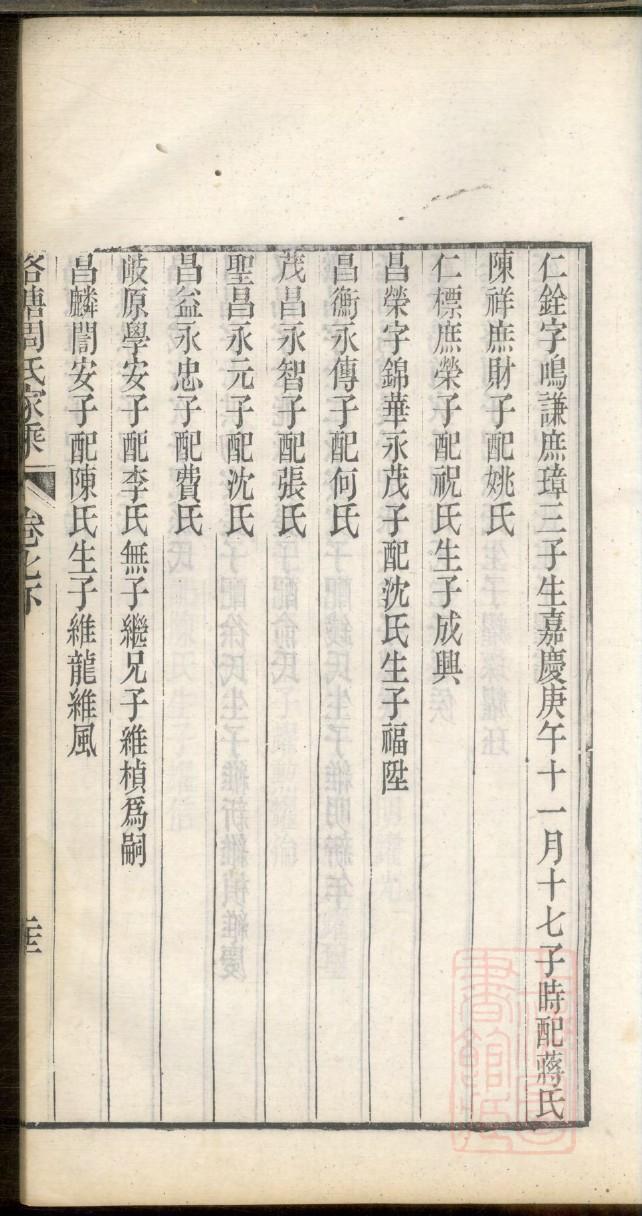 仁銓字鳴謙庶璋三子生嘉慶庚午十一月十七子時配蔣氏
陳祥庶財子配姚氏
仁標庶榮子配祝氏生子成興
昌榮字錦華永茂子配沈氏生子福陞
昌衡永傳子配何氏
茂昌永智子配張氏
聖昌永元子配沈氏
昌益永忠子配費氏
岐原學安子配李氏無子繼兄子維楨爲嗣
昌麟誾安子配陳氏生子維龍維風
塘周氏家乘
卷之下